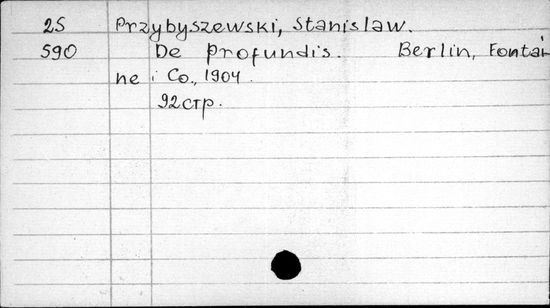 25 Przybyszewski, Stanislaw.
590 De profundis. Berlin, Fontai-
ne i Co., 1904.
92 стр.